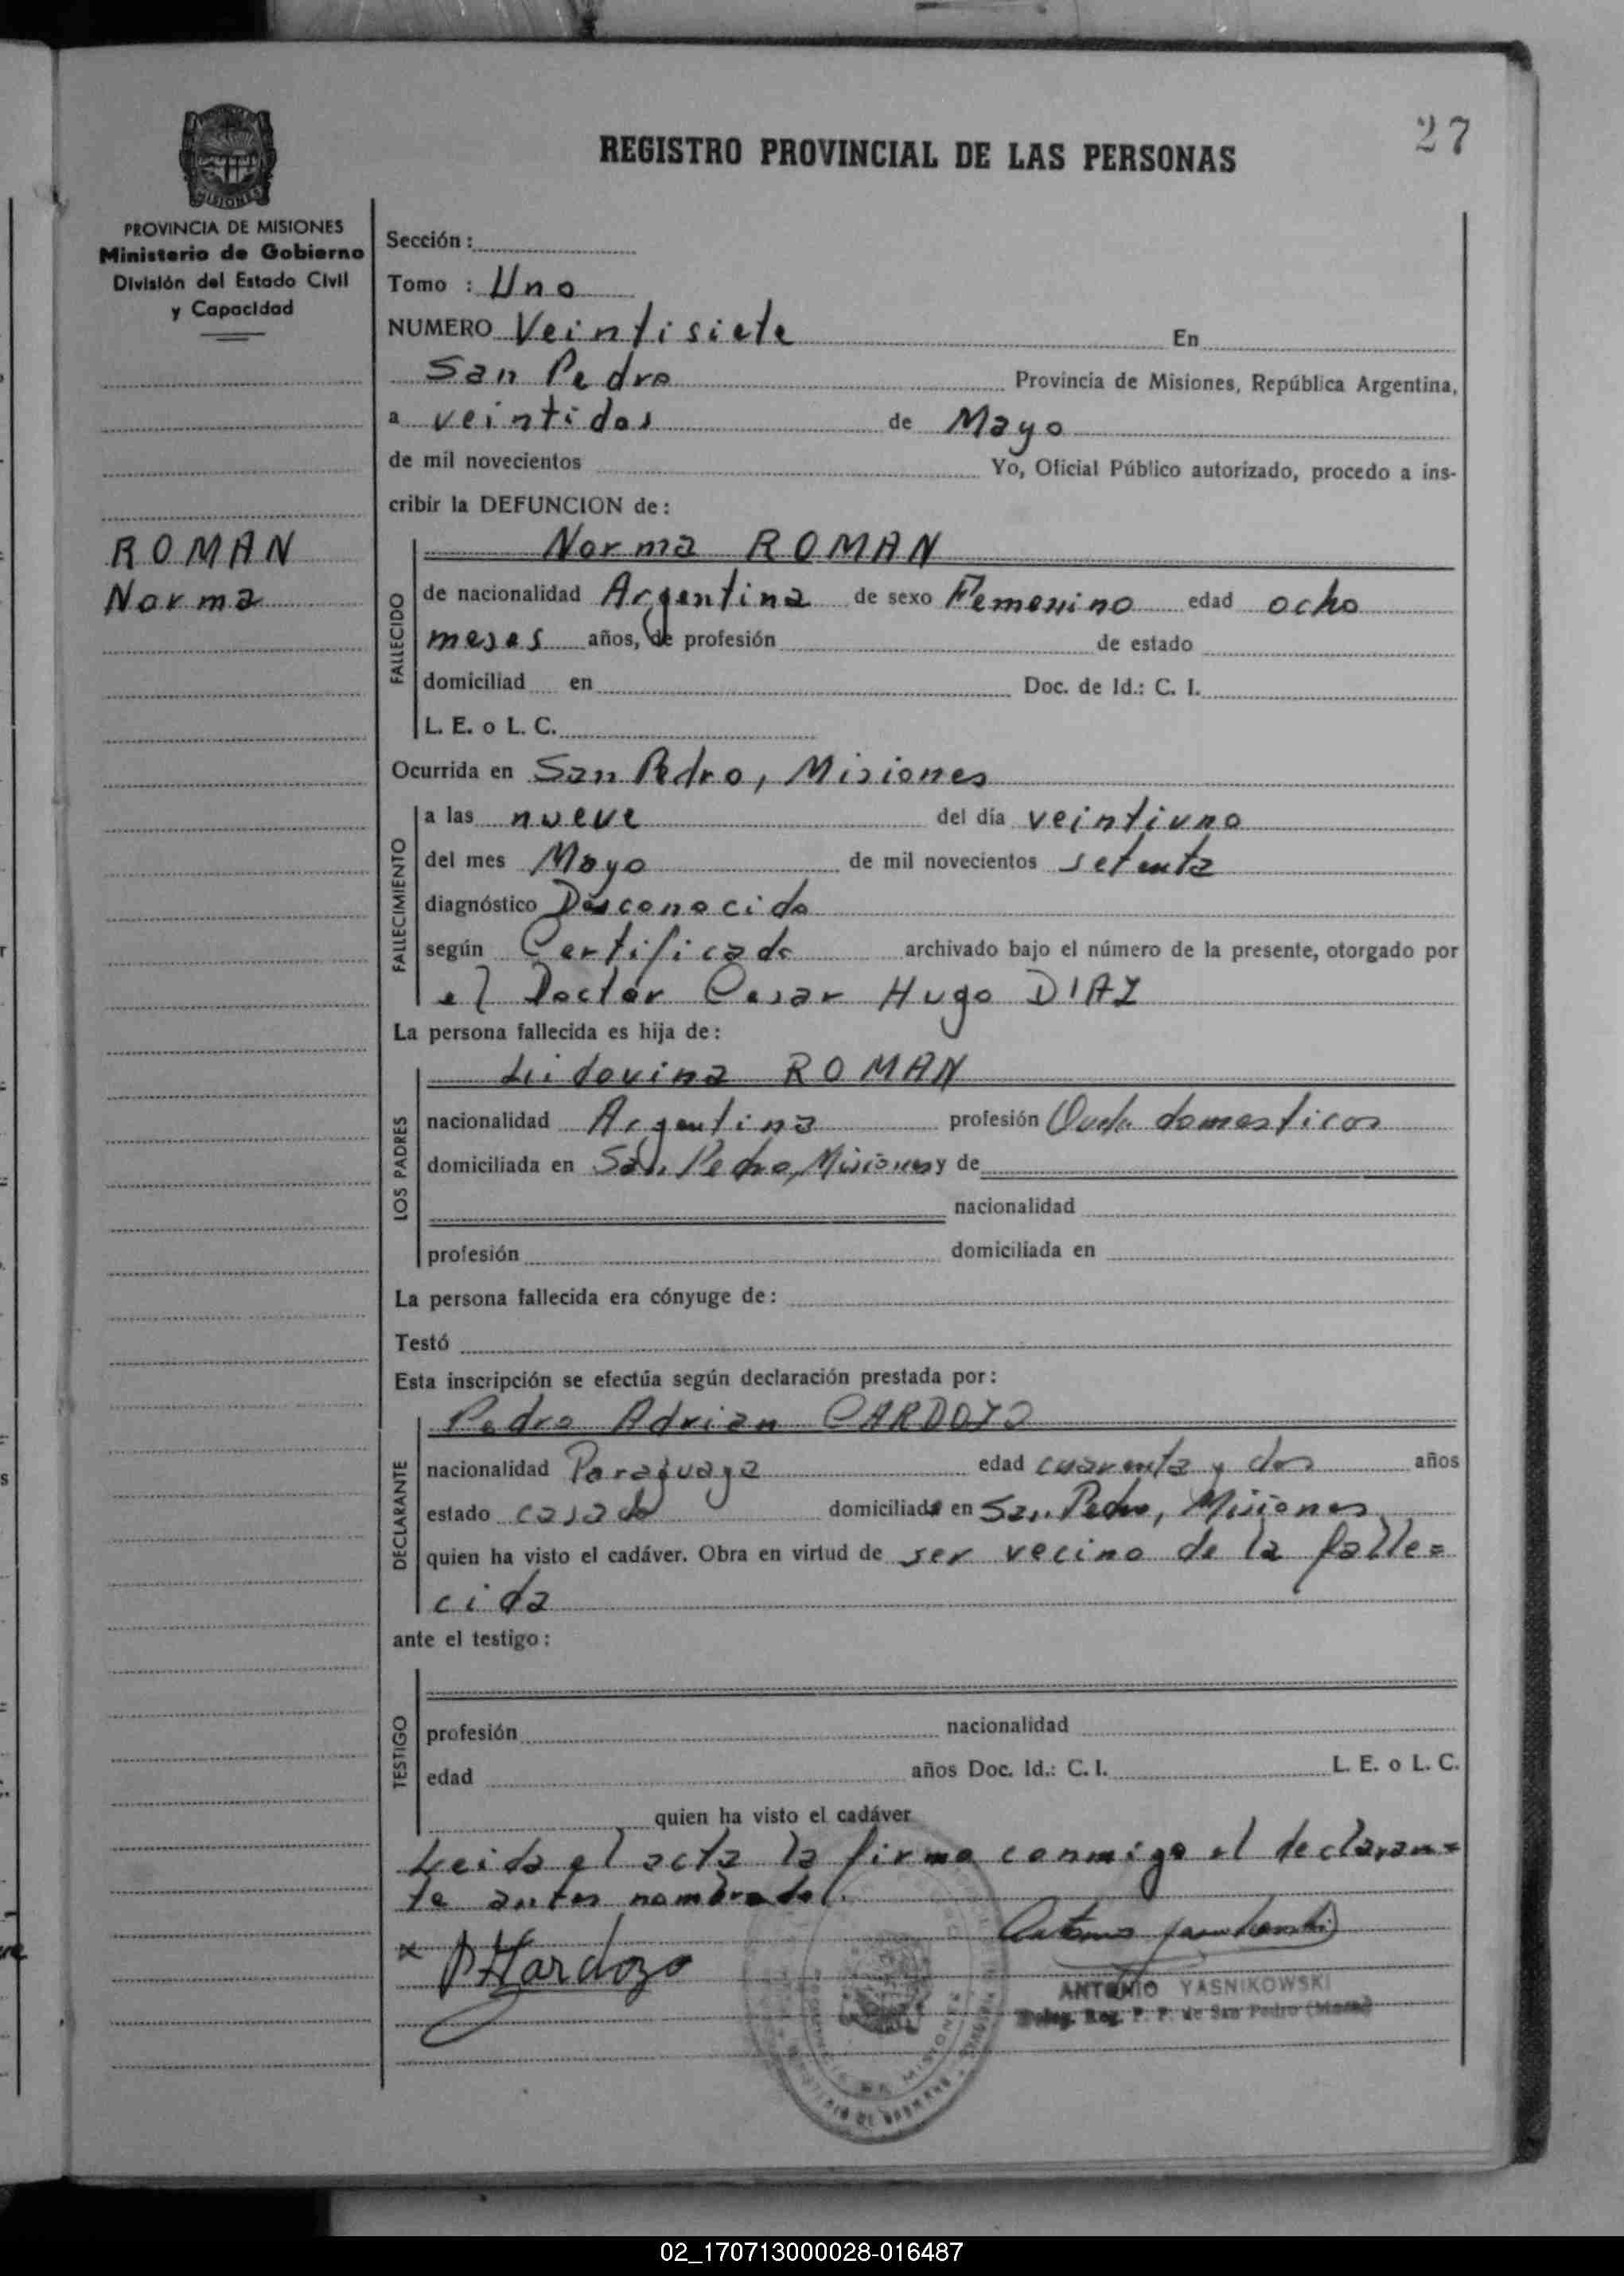 27
REGISTRO PROVINCIAL DE LAS PERSONAS
MISIONES
PROVINCIA DE MISIONES
Ministerio de Gobierno
División del Estado Civil
y Capacidad
ROMAN
Norma
Sección:
Tomo : Uno
NUMERO Veintisiete En
San Pedro Provincia de Misiones, República Argentina,
a veintidos de Mayo
de mil novecientos Yo, Oficial Público autorizado, procedo a ins-
cribir la DEFUNCION de:
Norma ROMAN
FALLECIDO
de nacionalidad Argentina de sexo Femenino edad ocho
meses años, de profesión de estado
domiciliad en Doc. de Id.: C. I.
L. E. o L. C.
Ocurrida en San Pedro, Misiones
FALLECIMIENTO
a las nueve del día veintiuno
del mes Mayo de mil novecientos setenta
diagnóstico Desconocido
según Certificado archivado bajo el número de la presente, otorgado por
el Doctor Cesar Hugo DIAZ
La persona fallecida es hija de:
LOS PADRES
ROMAN
nacionalidad Argentina profesión domesticos
domiciliada en San Pedro, Misiones y de
nacionalidad
profesión domiciliada en
La persona fallecida era cónyuge de:
Testó
Esta inscripción se efectúa según declaración prestada por:
DECLARANTE
Pedro Adrian CARDOZO
nacionalidad Paraguaya edad cuarenta y dos años
estado casado domiciliado en San Pedro, Misiones
quien ha visto el cadáver. Obra en virtud de ser vecino de la falle=
cida
ante el testigo:
TESTIGO
profesión nacionalidad
edad años Doc. Id.: C. I. L. E. o L. C.
quien ha visto el cadáver
Leida el acta la firma conmigo el declaran=
te antes nombrado.
x
ANTONIO YASNIKOWSKI
Deleg. Reg. P. P. de San Pedro
02_170713000028-016487